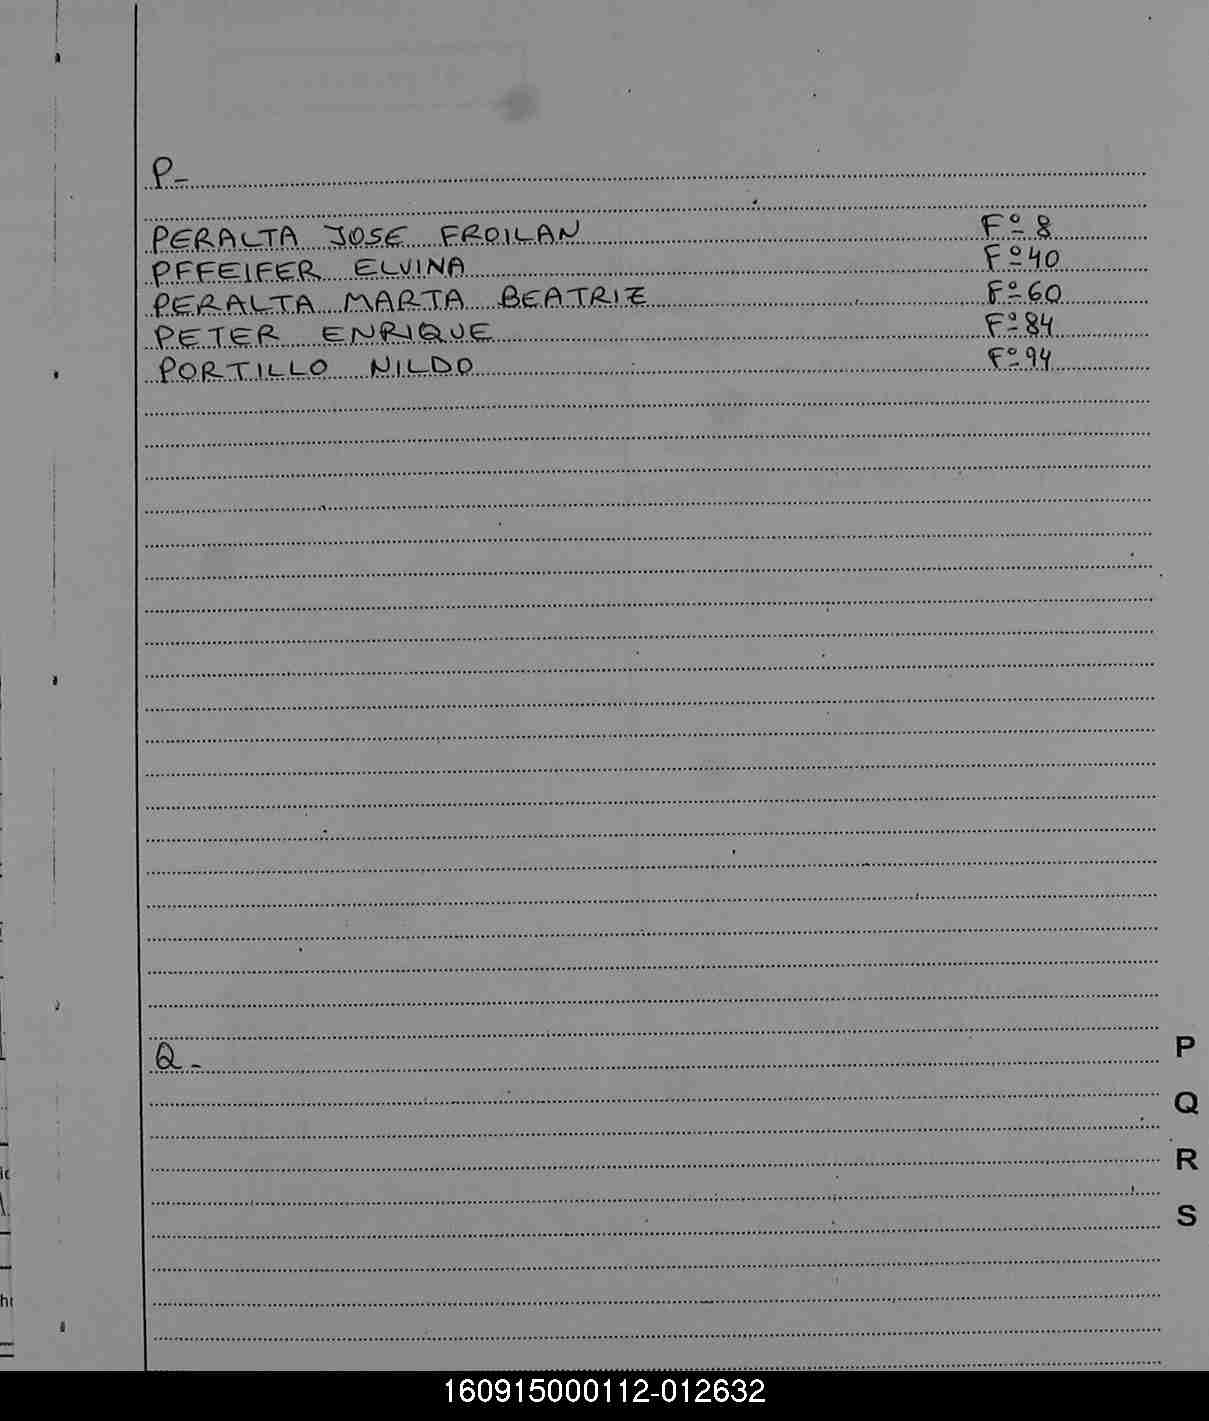 P-
PERALTA JOSE FROILAN Fº 8
PFFEIFER ELVINA Fº 40
PERALTA MARTA BEATRIZ Fº 60
PETER ENRIQUE Fº 84
PORTILLO NILDO Fº 94
Q-
P
Q
R
S
160915000112-012632